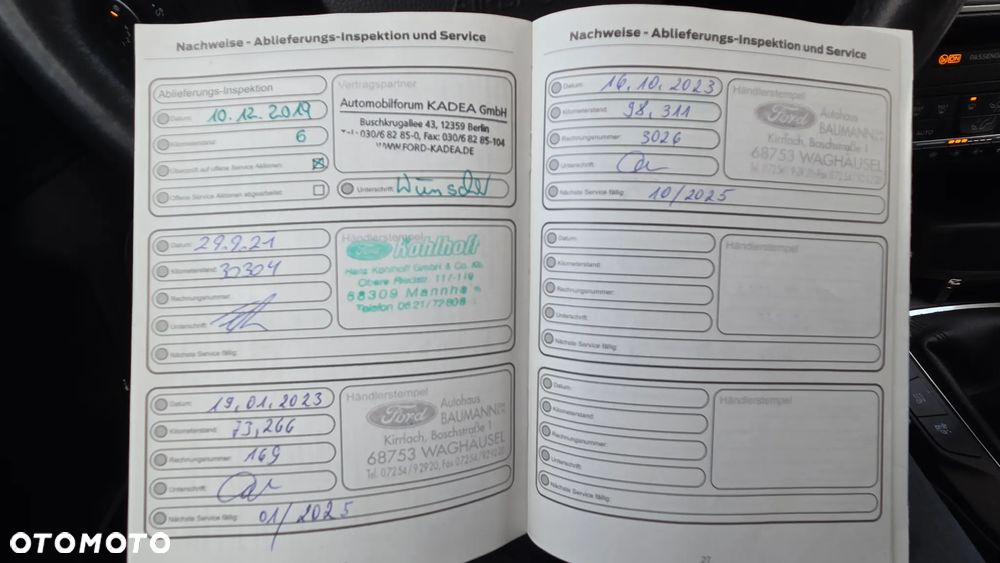 Nachweise - Ablieferungs-Inspektion und Service
Ablieferungs-Inspektion
Datum: 10.12.2019
Kilometerstand: 6
Überprüft auf offene Service Aktionen:
Offene Service Aktionen abgearbeitet:
Vertragspartner
Automobilforum KADEA GmbH
Buschkrugallee 43, 12359 Berlin
Tel.: 030/6 82 85-0, Fax: 030/6 82 85-104
WWW.FORD-KADEA.DE
Unterschrift: Wünscher
Datum: 29.9.21
Kilometerstand: 30304
Rechnungsnummer:
Unterschrift:
Nächste Service fällig:
Händlerstempel
Ford Kohlhoff
Hans Kohlhoff GmbH & Co. KG
Obere Riedstr. 117-119
68309 Mannheim
Telefon 0621/72808
Datum: 19,01,2023
Kilometerstand: 73,266
Rechnungsnummer: 169
Unterschrift:
Nächste Service fällig: 01/2025
Händlerstempel
Ford Autohaus
BAUMANN
Kirrlach, Boschstraße 1
68753 WAGHÄUSEL
Tel. 07254/92920, Fax 07254/929220
Nachweise - Ablieferungs-Inspektion und Service
Datum: 16,10,2023
Kilometerstand: 98,311
Rechnungsnummer: 3026
Unterschrift:
Nächste Service fällig: 10/2025
Händlerstempel
Ford Autohaus
BAUMANN
Kirrlach, Boschstraße 1
68753 WAGHÄUSEL
Datum:
Kilometerstand:
Rechnungsnummer:
Unterschrift:
Nächste Service fällig:
Händlerstempel
Datum:
Kilometerstand:
Rechnungsnummer:
Unterschrift:
Nächste Service fällig:
Händlerstempel
27
PASSENG
AUTO
OTOMOTO